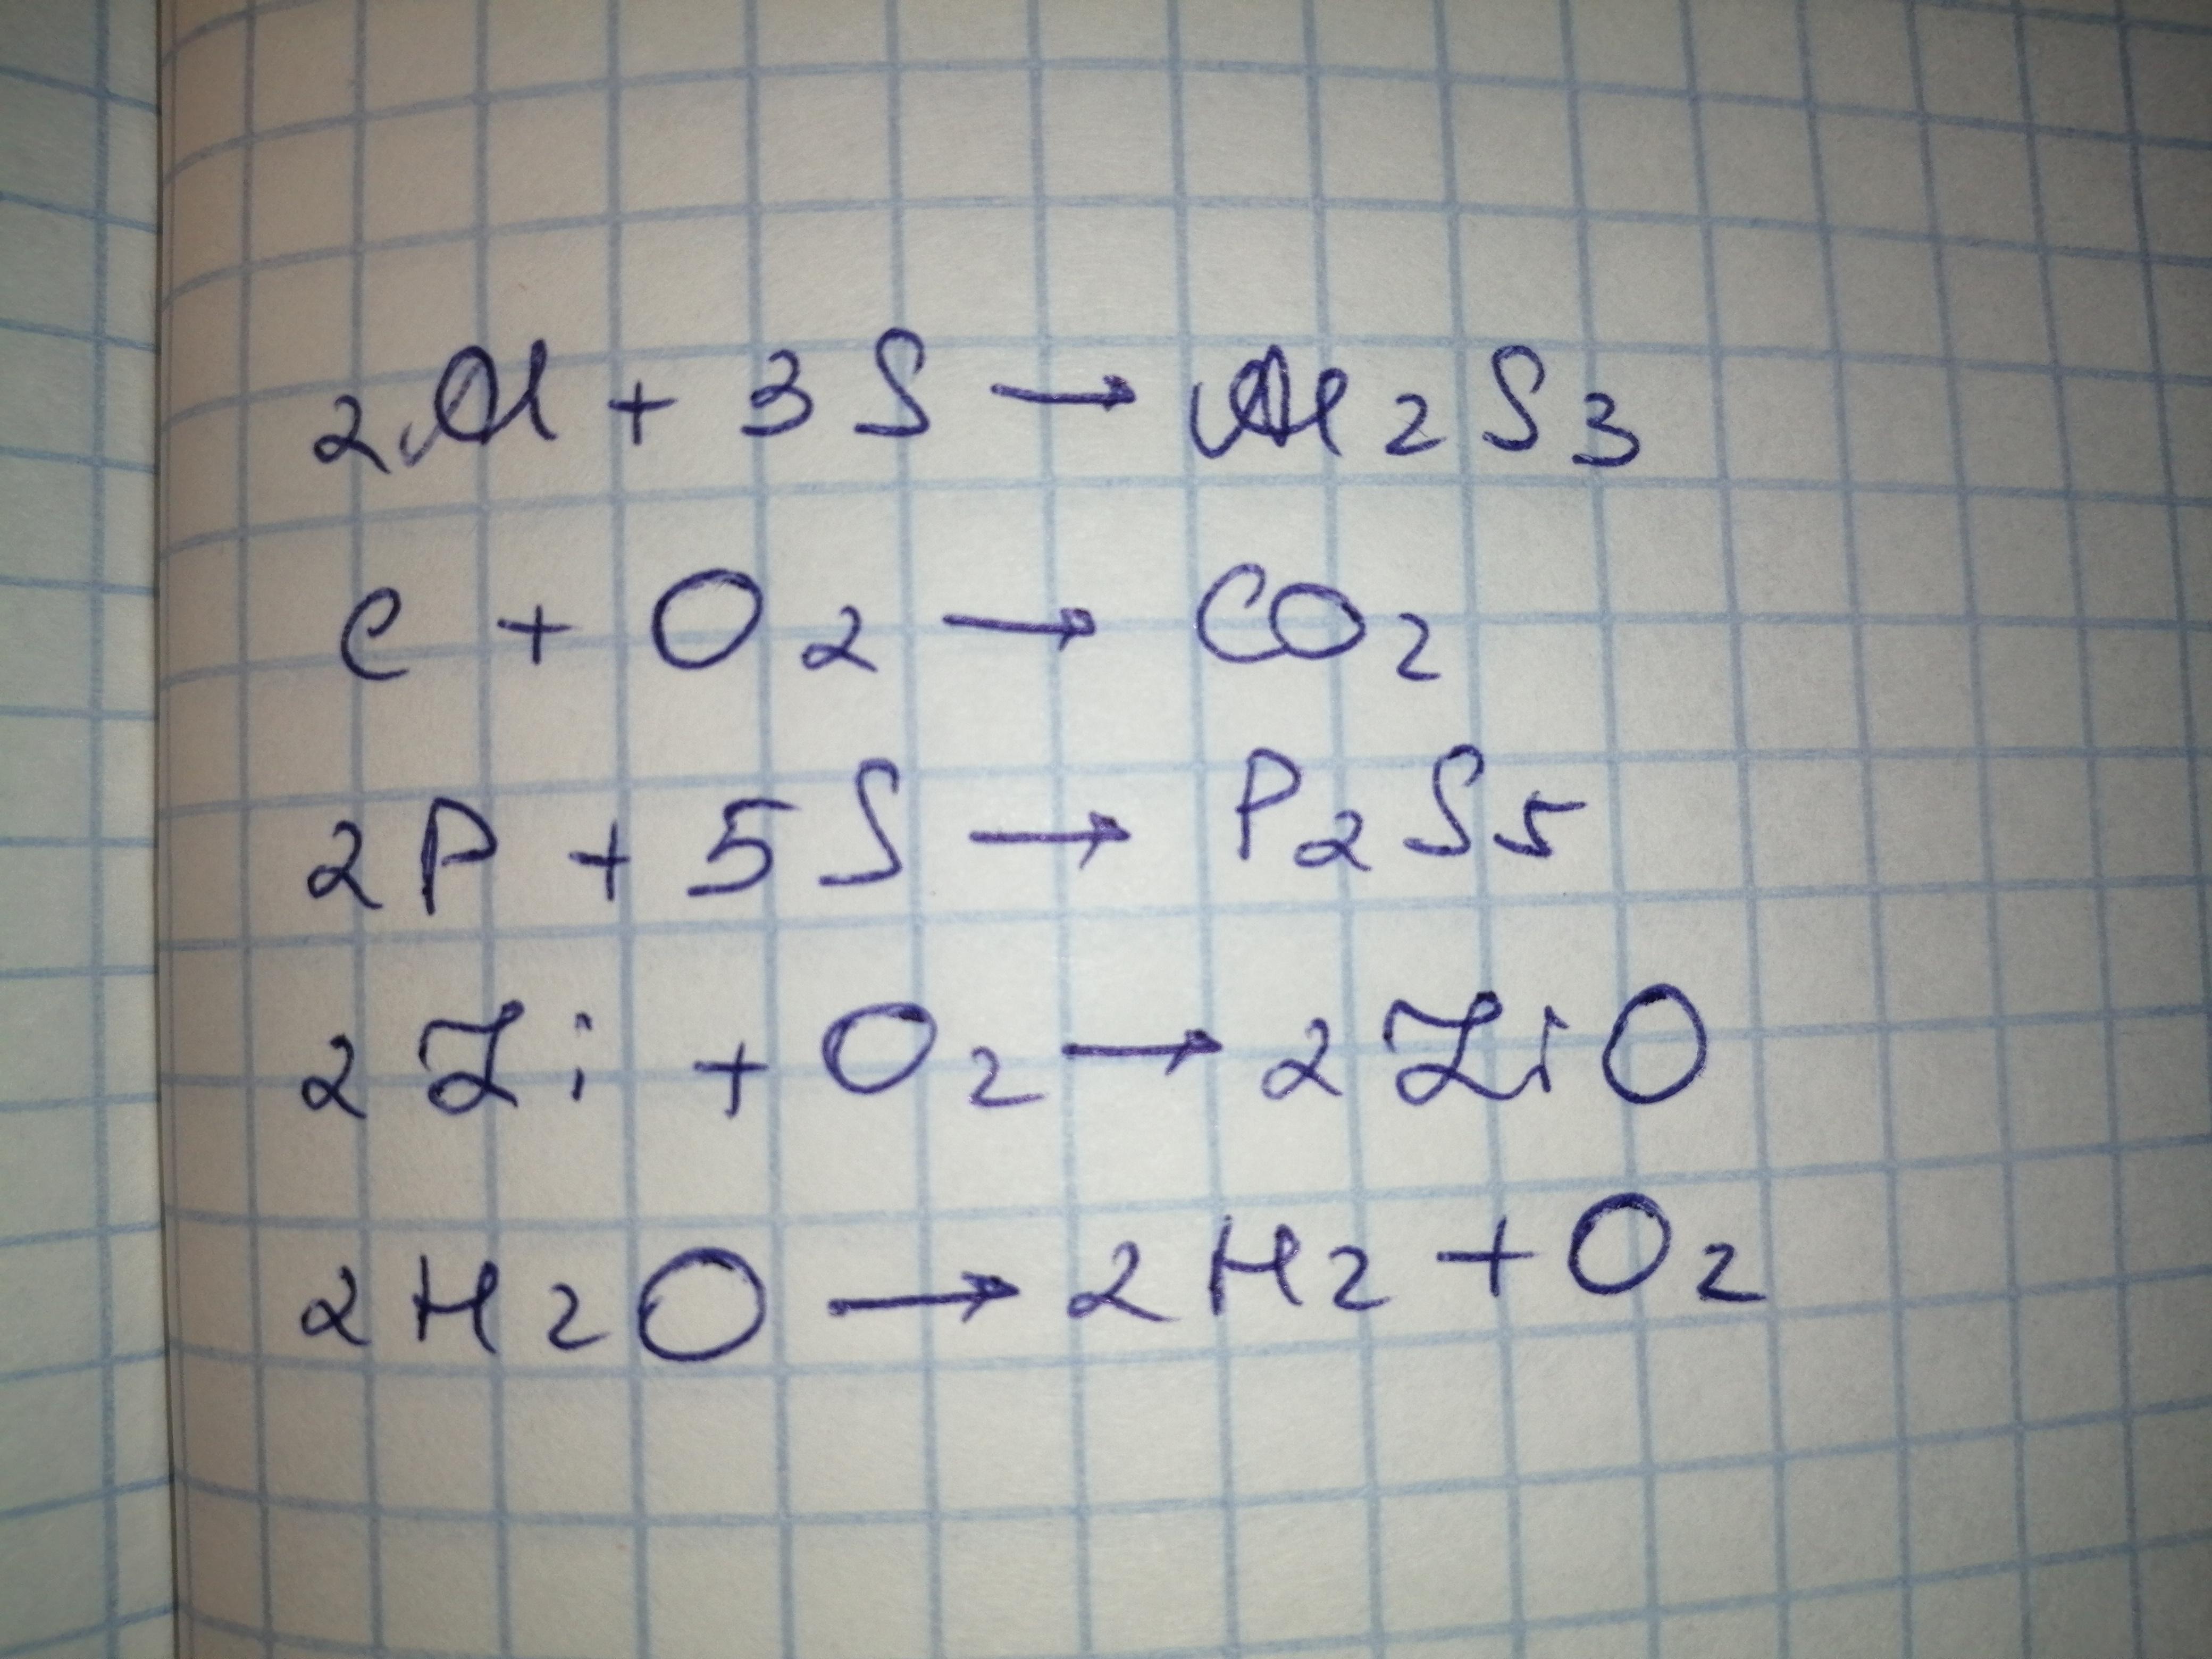 2Al + 3S → Al2S3
C + O2 → CO2
2P + 5S → P2S5
2Zi + O2 → 2ZiO
2H2O → 2H2 + O2